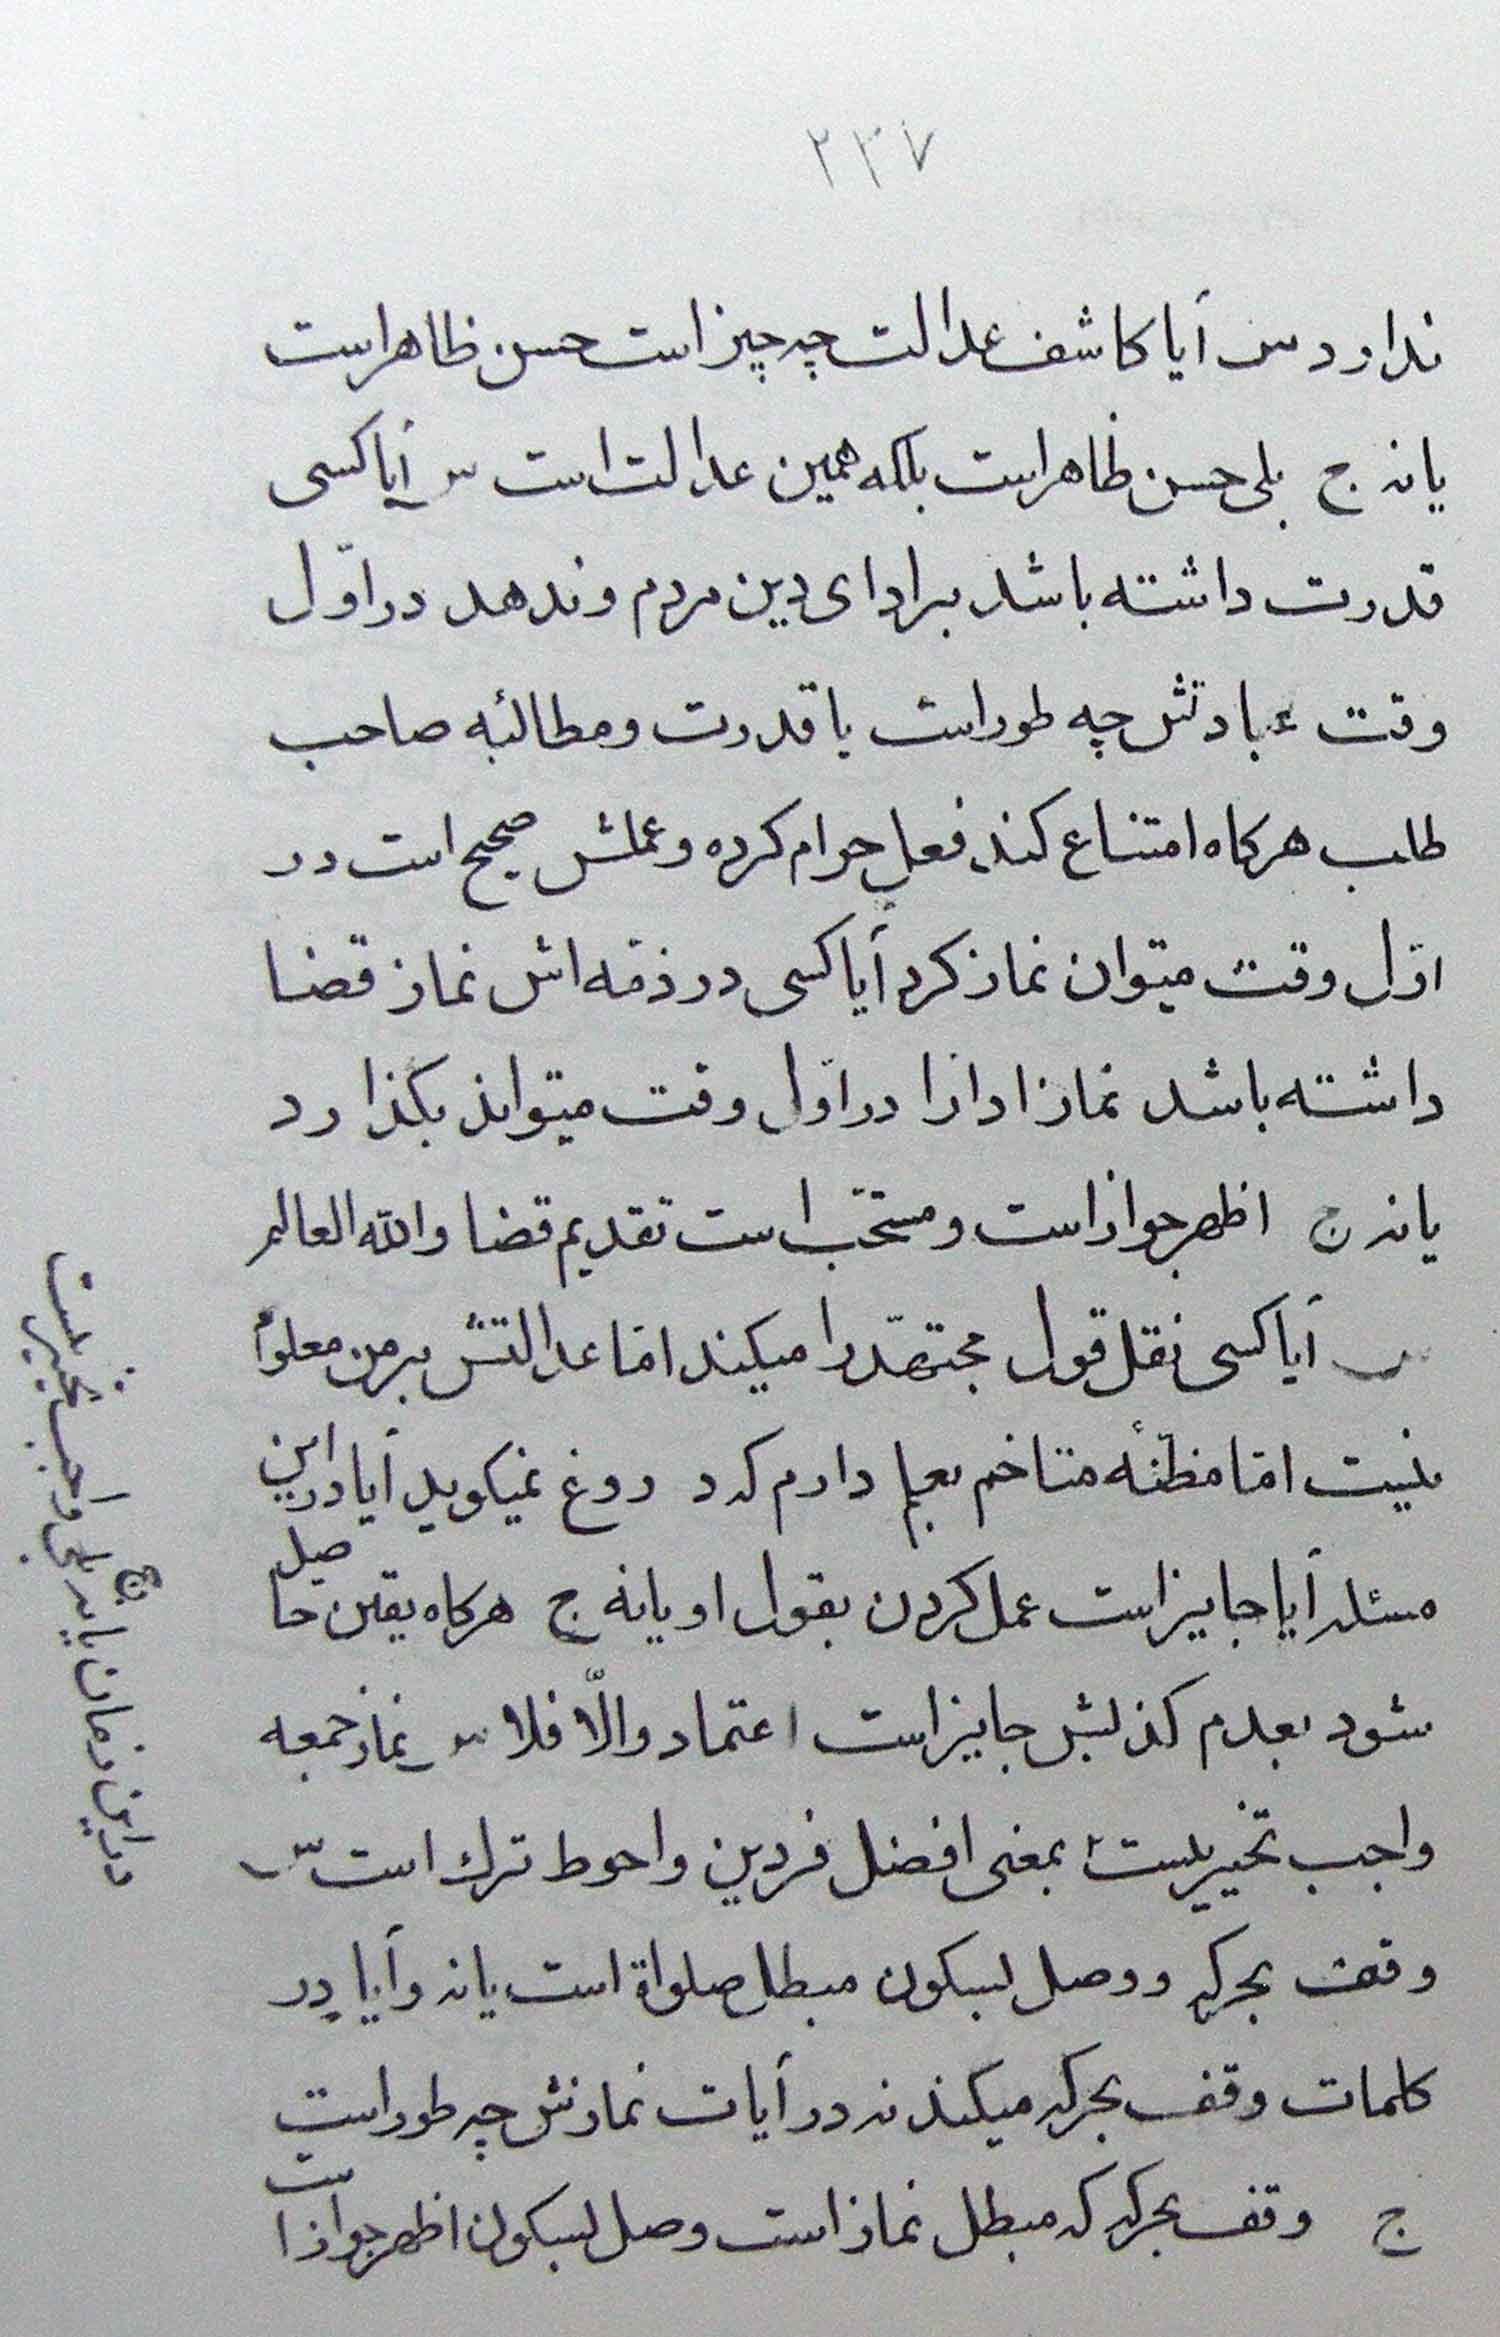 ۲۳۷
ندارد س آیا کاشف عدالت چه چیز است حسن ظاهر است
یا نه ج بلی حسن ظاهر است بلکه همین عدالت است س آیا کسی
قدرت داشته باشد بر ادای دین مردم و ندهد در اوّل
وقت عبادتش چه طور است با قدرت و مطالبه صاحب
طلب هرکاه امتناع کند فعل حرام کرده و عملش صحیح است در
اوّل وقت میتوان نماز کرد آیا کسی در ذمّه اش نماز قضا
داشته باشد نماز ادا را در اوّل وقت میتواند بکذارد
یا نه ج اظهر جواز است و مستحّب است تقدیم قضا والله العالم
س آیا کسی نقل قول مجتهد را میکند امّا عدالتش بر من معلوم
نیست امّا مظنّهٔ متاخم بعلم دارم که دروغ نمیکوید آیا در این
مسئله آیا جایز است عمل کردن بقول او یا نه ج هرکاه یقین حاصل
شود بعدم کذبش جایز است اعتماد والّا فلا س نماز جمعه
در این زمان یا نه ج بلی واجب تخییریست
واجب تخییریست بمعنی افضل فردین و احوط ترک است س
وقف بحرکه و وصل بسکون مبطل صلواة است یا نه و آیا در
کلمات وقف بحرکه میکند نه در آیات نمازش چه طور است
ج وقف بحرکه که مبطل نماز است وصل بسکون اظهر جواز است